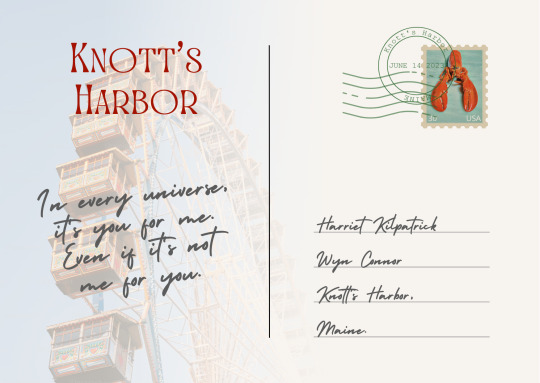 KNOTT'S
HARBOR
In every universe,
it's you for me.
Even if it's not
me for you.
Knott's Harbor
JUNE 14 2023
MAINE
USA
Harriet Kilpatrick
Wyn Connor
Knott's Harbor,
Maine.